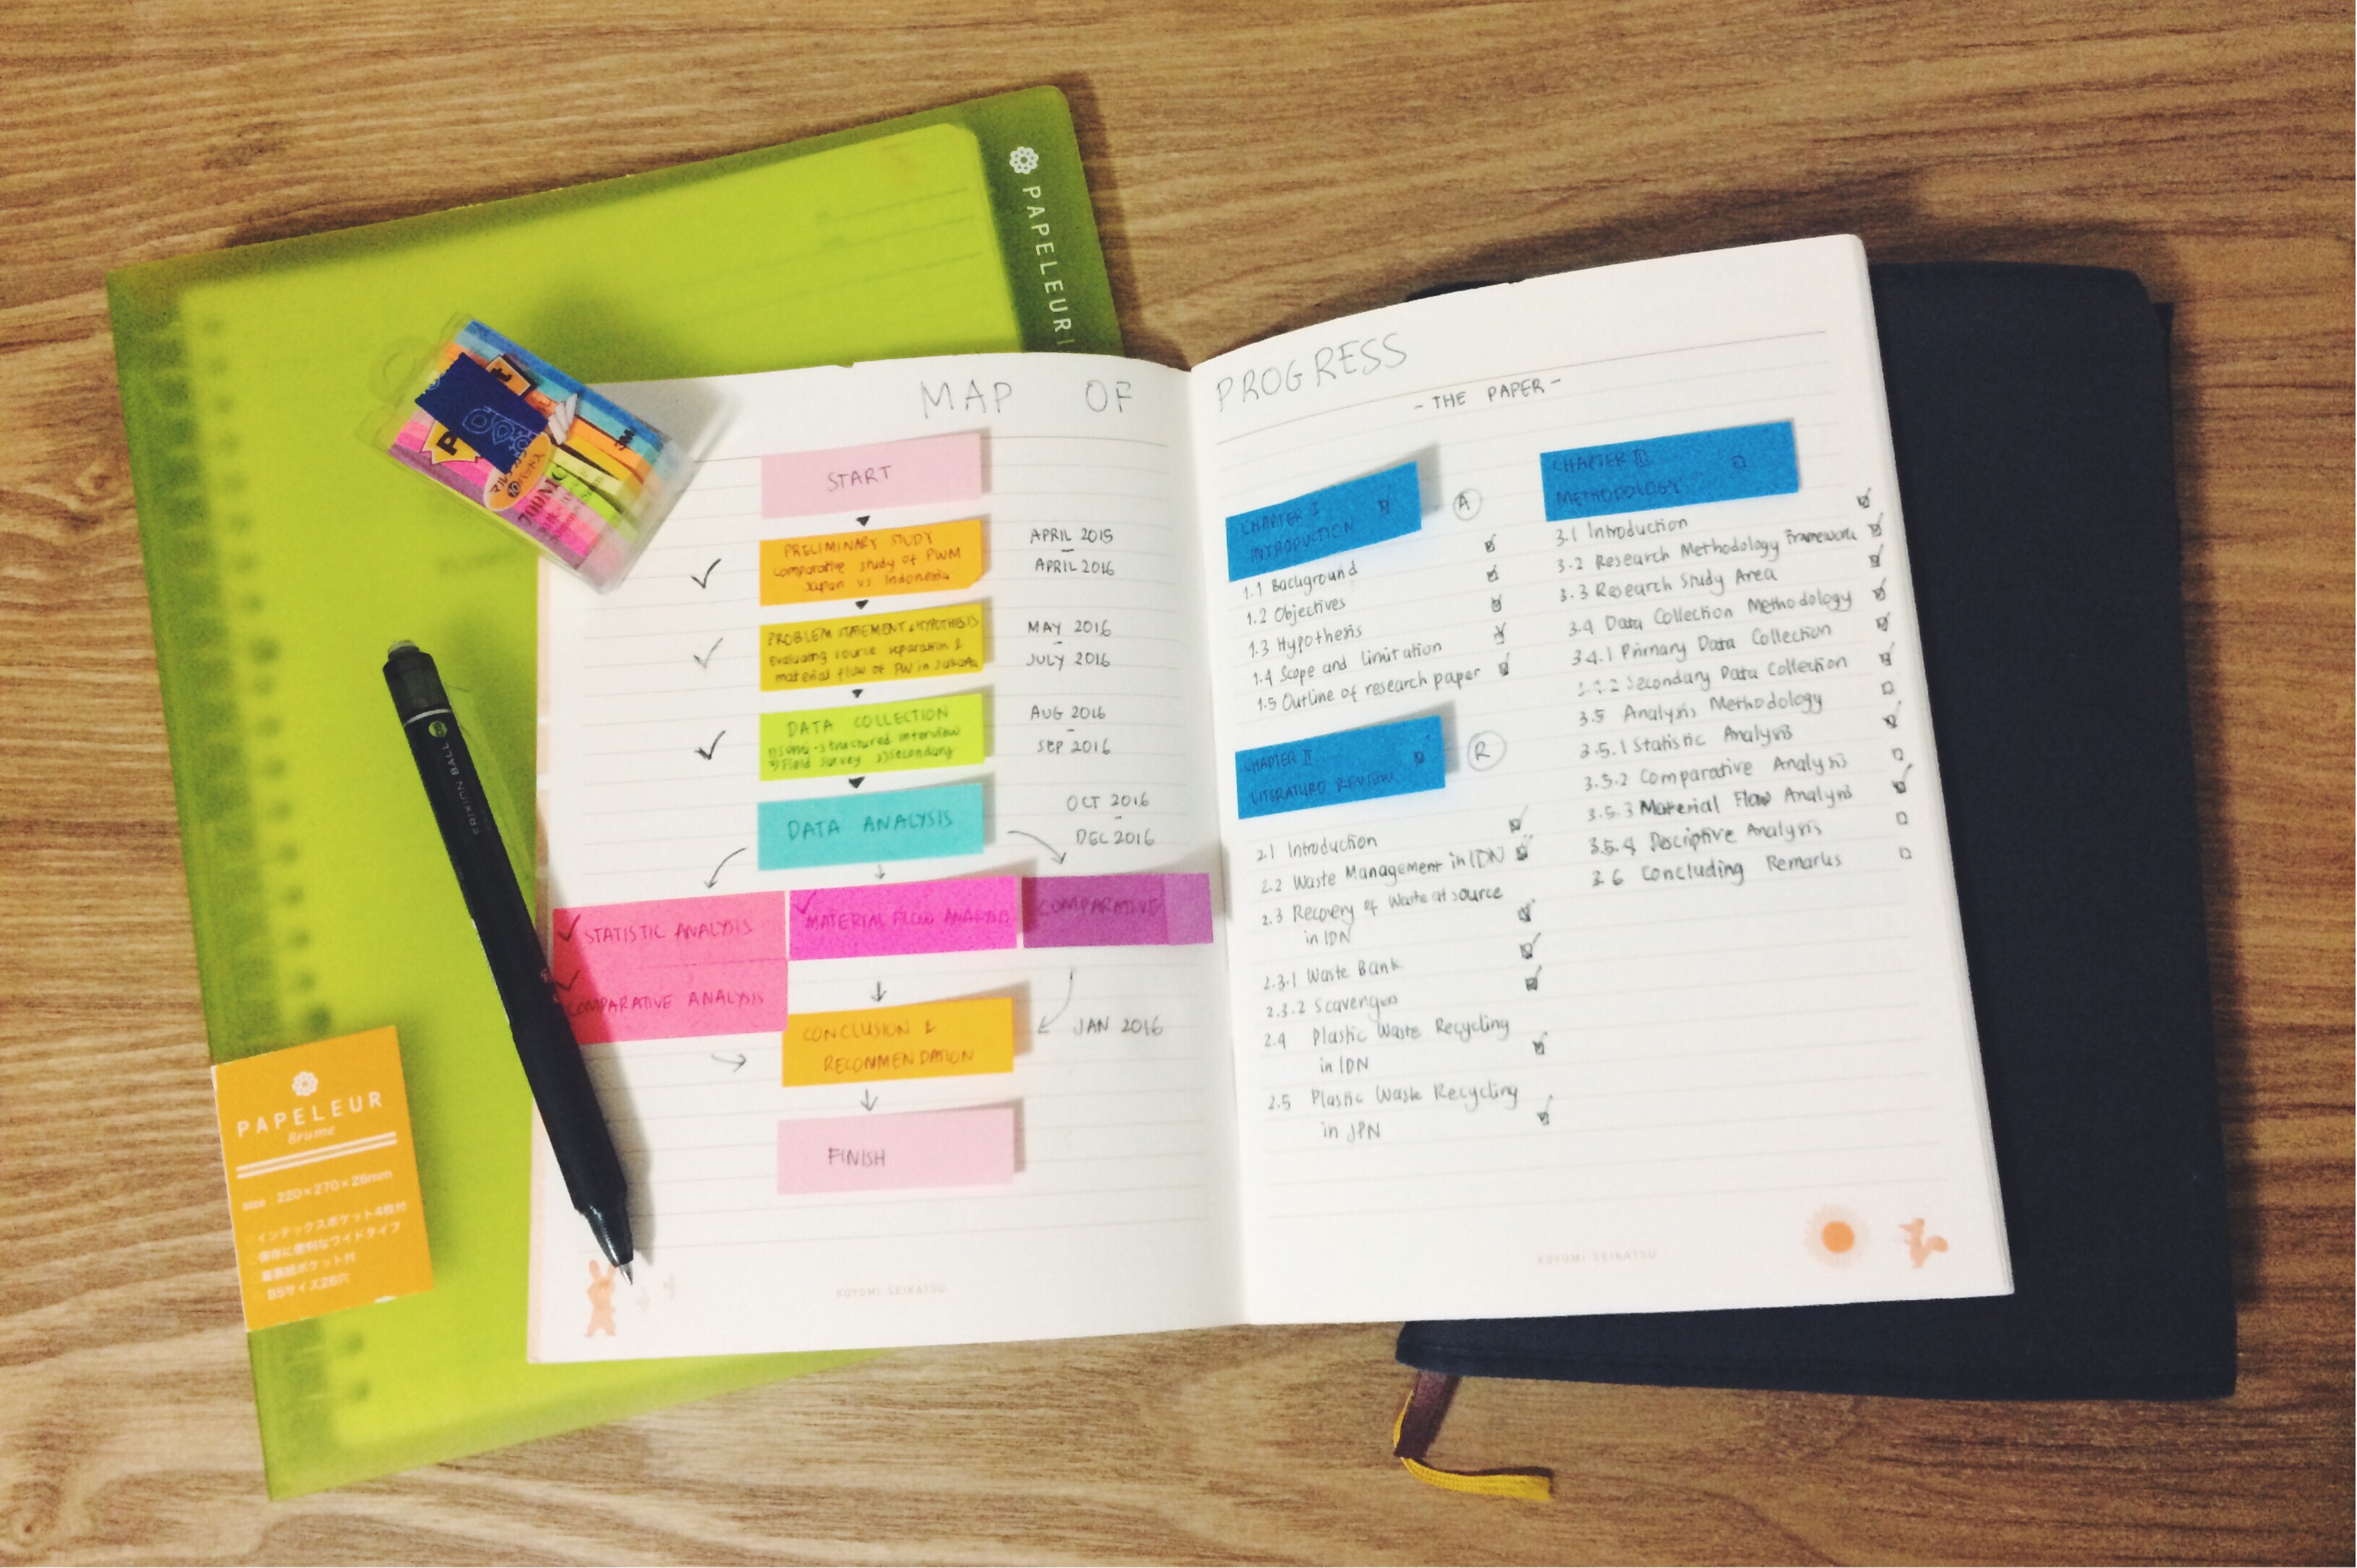 PAPELEURI
MAP OF PROGRESS
START
PRELIMINARY STUDY
Comparative study of PWM
Japan vs Indonesia
APRIL 2015
-
APRIL 2016
PROBLEM STATEMENT & HYPOTHESIS
Evaluating source separation &
material flow of PW in Jakarta
MAY 2016
-
JULY 2016
DATA COLLECTION
1) Semi-structured interview
2) Field survey 3) Secondary
AUG 2016
-
SEP 2016
DATA ANALYSIS
OCT 2016
-
DEC 2016
STATISTIC ANALYSIS
MATERIAL FLOW ANALYSIS
COMPARATIVE
COMPARATIVE ANALYSIS
CONCLUSION &
RECOMMENDATION
JAN 2016
FINISH
KOYOMI SEIKATSU
- THE PAPER -
CHAPTER I
INTRODUCTION
A
1.1 Background
1.2 Objectives
1.3 Hypothesis
1.4 Scope and limitation
1.5 Outline of research paper
CHAPTER II
LITERATURE REVIEW
R
2.1 Introduction
2.2 Waste Management in IDN
2.3 Recovery of Waste at source
in IDN
2.3.1 Waste Bank
2.3.2
2.4 Plastic Waste Recycling
in IDN
2.5 Plastic Waste Recycling
in JPN
CHAPTER III
METHODOLOGY
3.1 Introduction
3.2 Research Methodology Framework
3.3 Research Study Area
3.4 Data Collection Methodology
3.4.1 Primary Data Collection
Secondary Data Collection
3.5 Analysis Methodology
3.5.1 Statistic Analysis
3.5.2 Comparative Analysis
3.5.3 Material Flow Analysis
3.5.4 Descriptive Analysis
3.6 Concluding Remarks
KOYOMI SEIKATSU
3M
FRIXION BALL
PAPELEUR
Brume
size : 220×270×26mm
インデックスポケット4枚付
保存に便利なワイドタイプ
裏表紙ポケット付
B5サイズ26穴